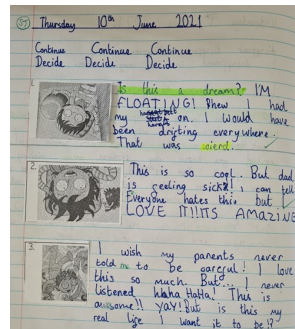 Thursday 10th June 2021
Continue Continue Continue
Decide Decide Decide
Is this a dream? I'M
FLOATING! Phew I had
my on. I would have
been drifting everywhere.
That was eierd.
2.
This is so cool. But dad
is feeling sick!! i can tell
Everyone hates this but
LOVE IT!!ITS AMAZING
3.
I wish my parents never
told me to be careful! I love
this so much. But... I never
listened Haha HaHa! This is
awsome!! yay! But is this my
real life I want it to be!?